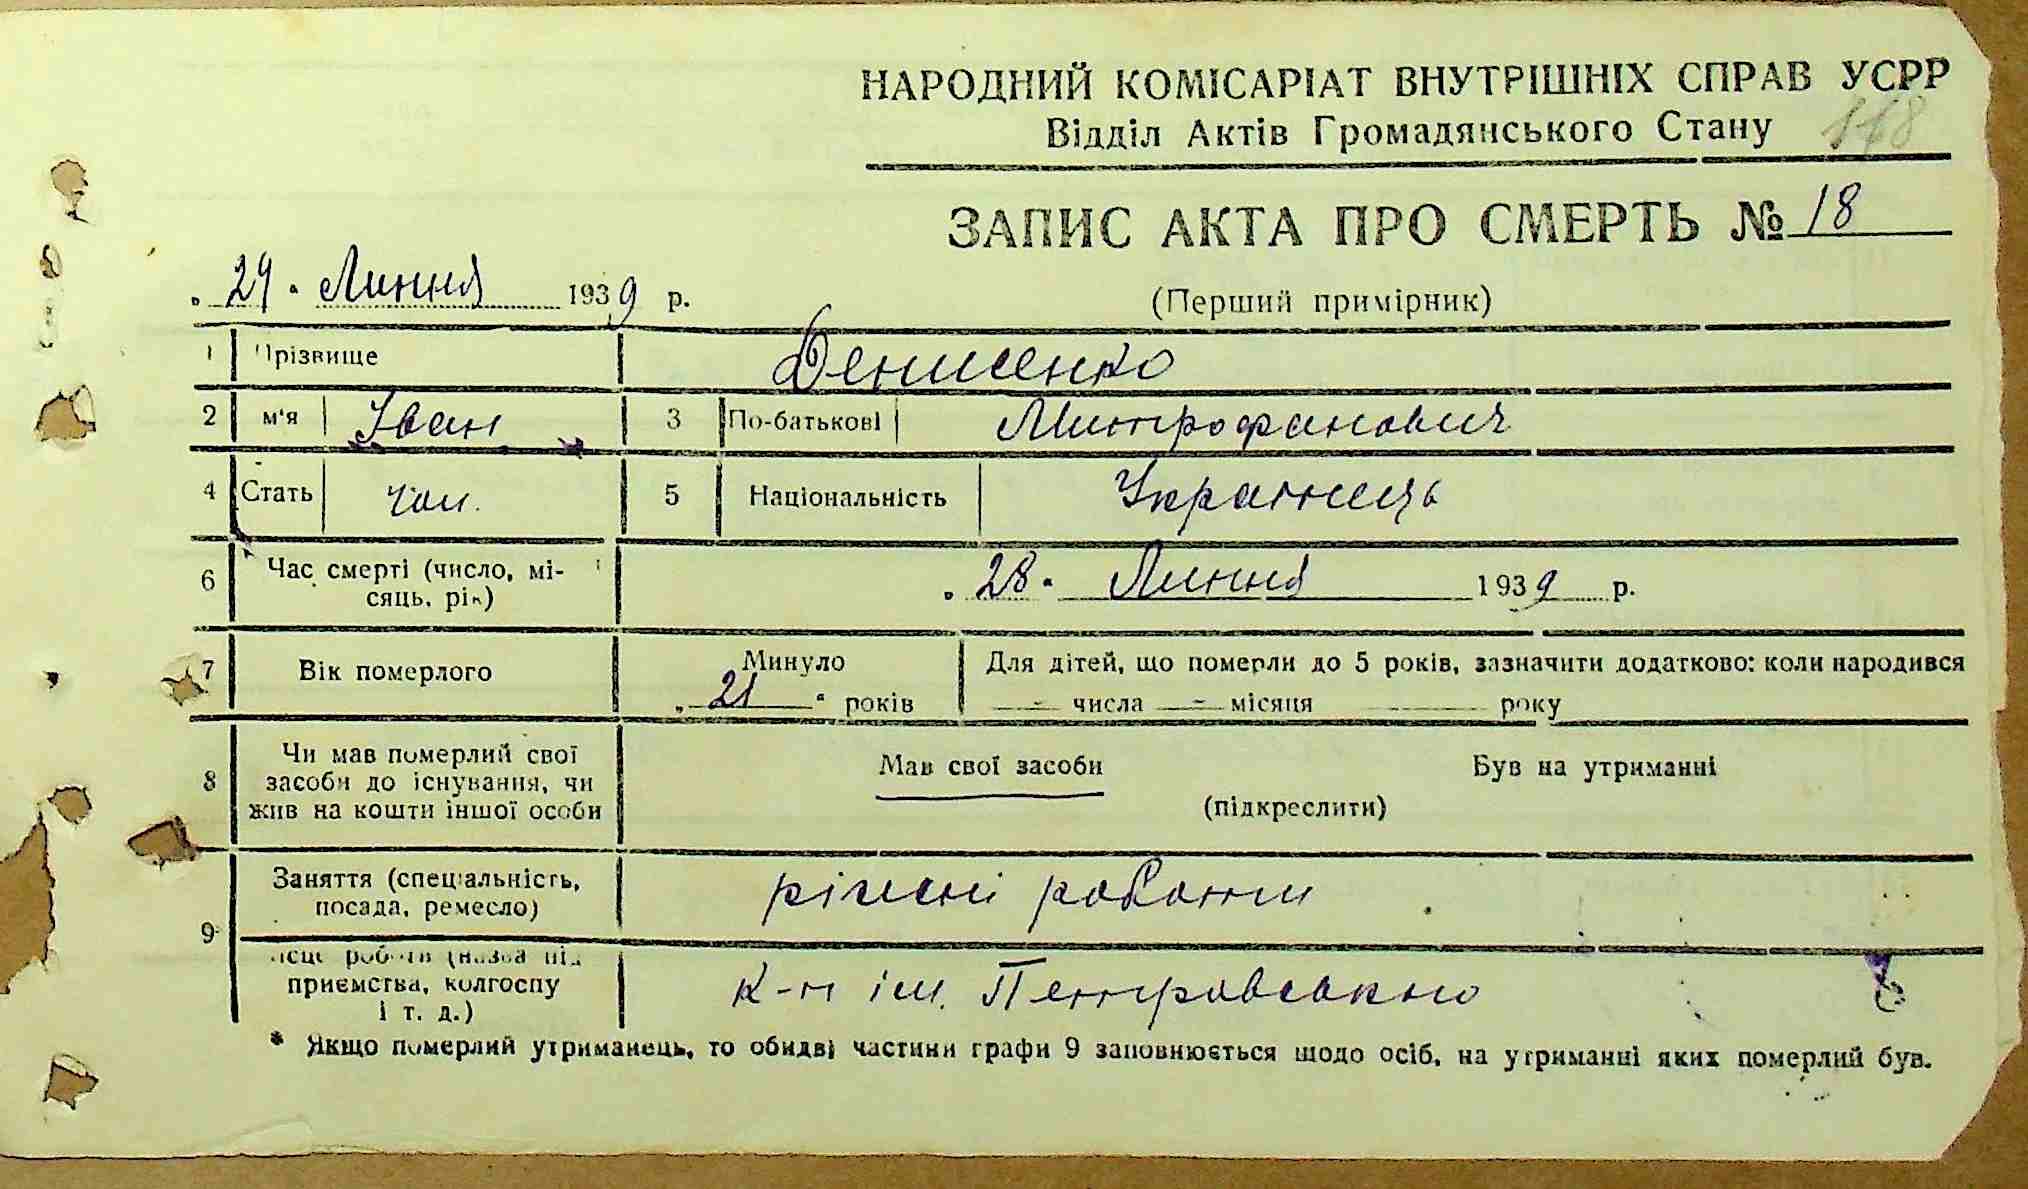 НАРОДНИЙ КОМІСАРІАТ ВНУТРІШНІХ СПРАВ УСРР
Відділ Актів Громадянського Стану
118
ЗАПИС АКТА ПРО СМЕРТЬ № 18
„ 29 " Липня 1939 р.
(Перший примірник)
1 Прізвище Денисенко
2 м'я Іван 3 По-батькові Митрофанович
4 Стать чол. 5 Національність Українець
6 Час смерті (число, мі-
сяць, рік) „ 28 " Липня 1939 р.
7 Вік померлого Минуло „ 21 " років Для дітей, що померли до 5 років, зазначити додатково: коли народився
— числа — місяця року
8 Чи мав померлий свої
засоби до існування, чи
жив на кошти іншої особи
Мав свої засоби Був на утриманні
(підкреслити)
9 Заняття (спеціальність,
посада, ремесло) ріжні роботи
місце роботи (назва під
приємства, колгоспу
і т. д.) К-п ім. Петровського
* Якщо померлий утриманець, то обидві частини графи 9 заповнюється щодо осіб, на утриманні яких померлий був.